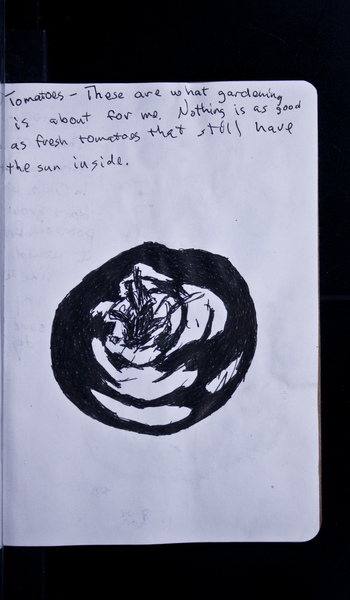 Tomatoes – These are what gardening
is about for me. Nothing is as good
as fresh tomatoes that still have
the sun inside.